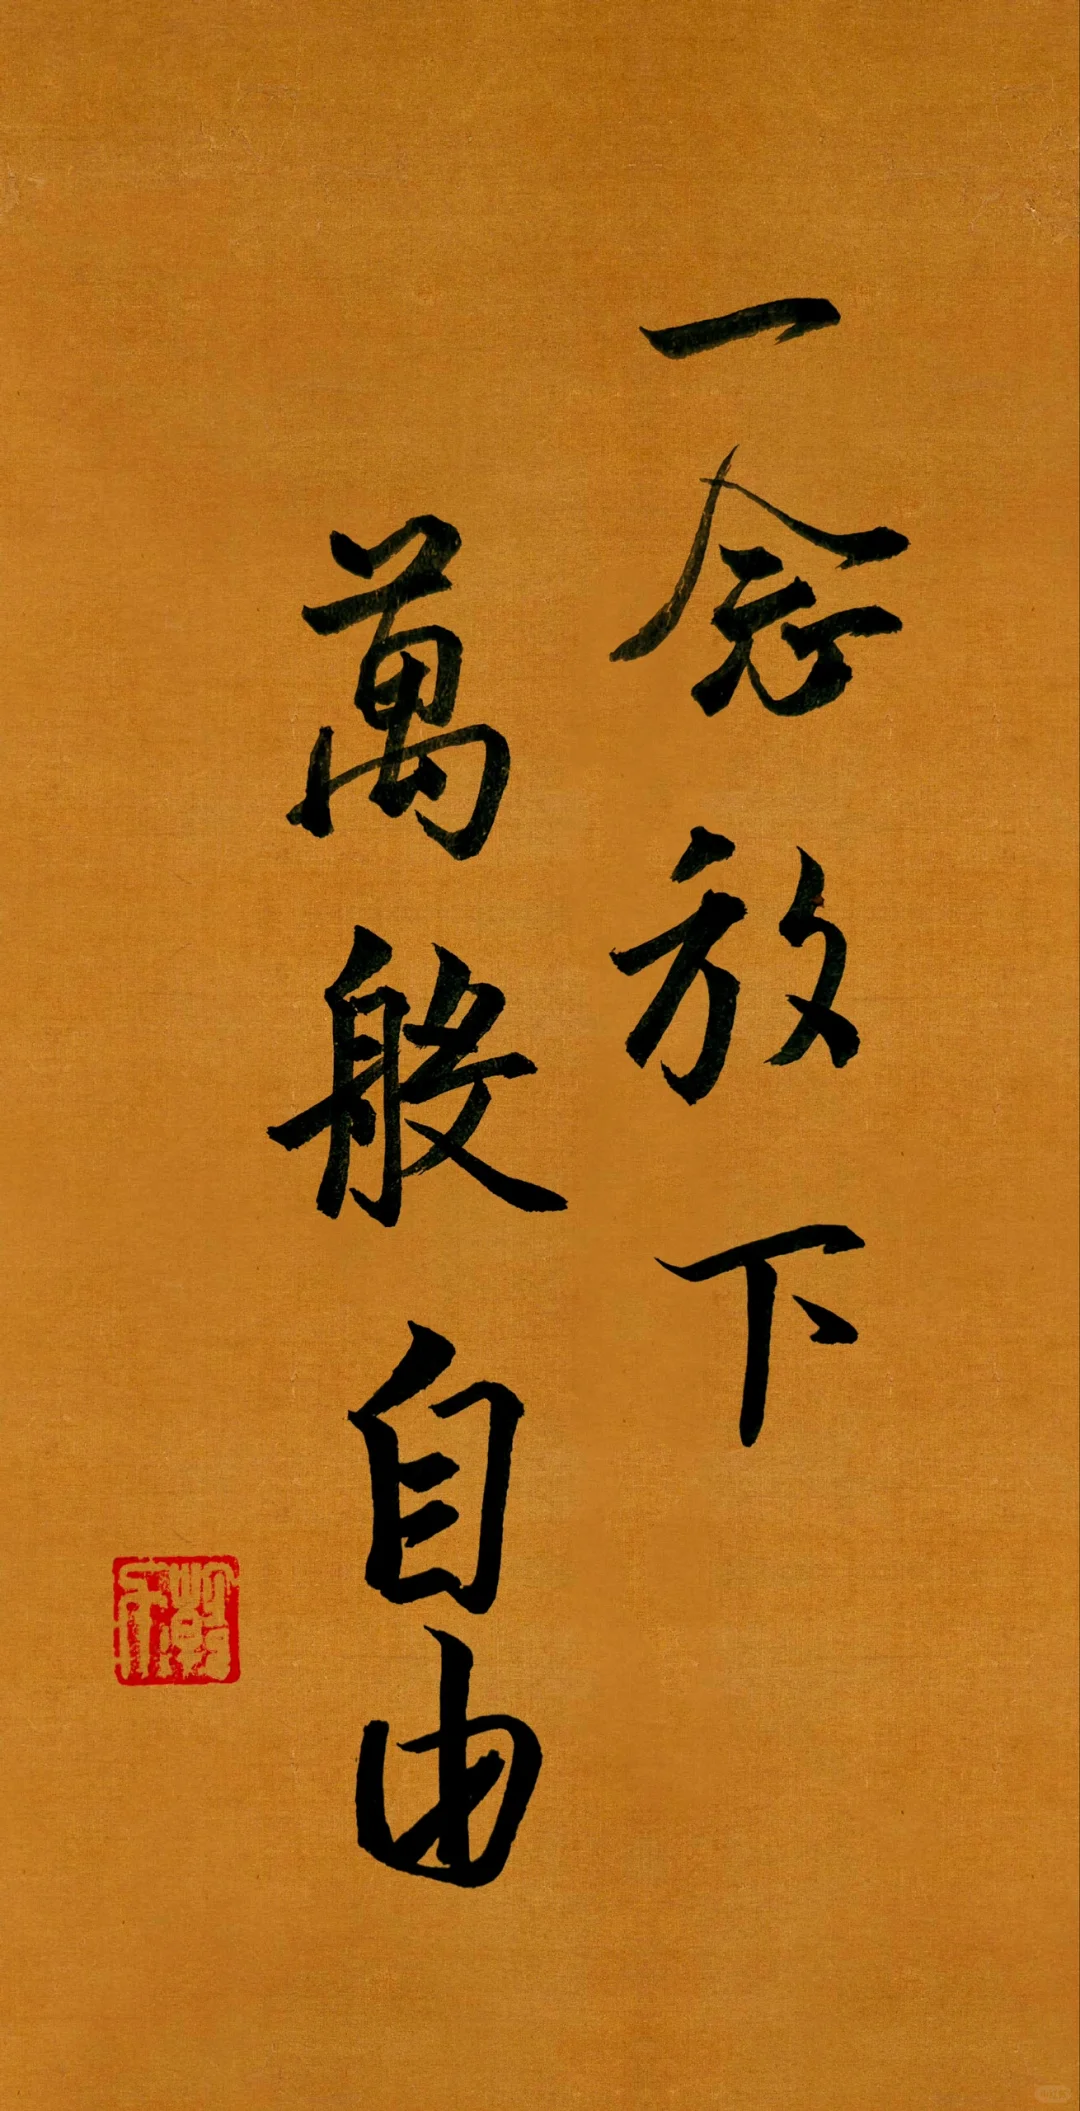 一念放下
萬般自由